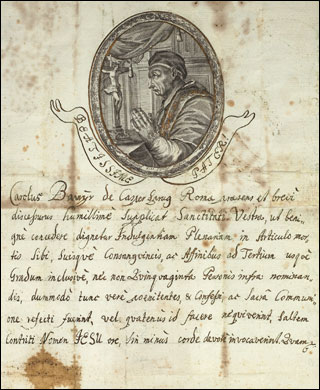 BEATISSIME PATER.
Carolus de Roma praesens et brevi
discessurus humillime Supplicat Sanctitati Vestrae, ut beni-
gne concedere dignetur Indulgentiam Plenariam in Articulo mor-
tis Sibi, Suisque Consanguineis, ac Affinibus ad Tertium usque
Gradum inclusive, nec non Quinquaginta Personis infra nominan-
dis, dummodo tunc vere poenitentes & Confessi, ac Sacra Communi-
one refecti fuerint, vel quatenus id facere nequiverint, Saltem
Contriti Nomen IESU ore, Sin minus corde devote invocaverint. Quam &